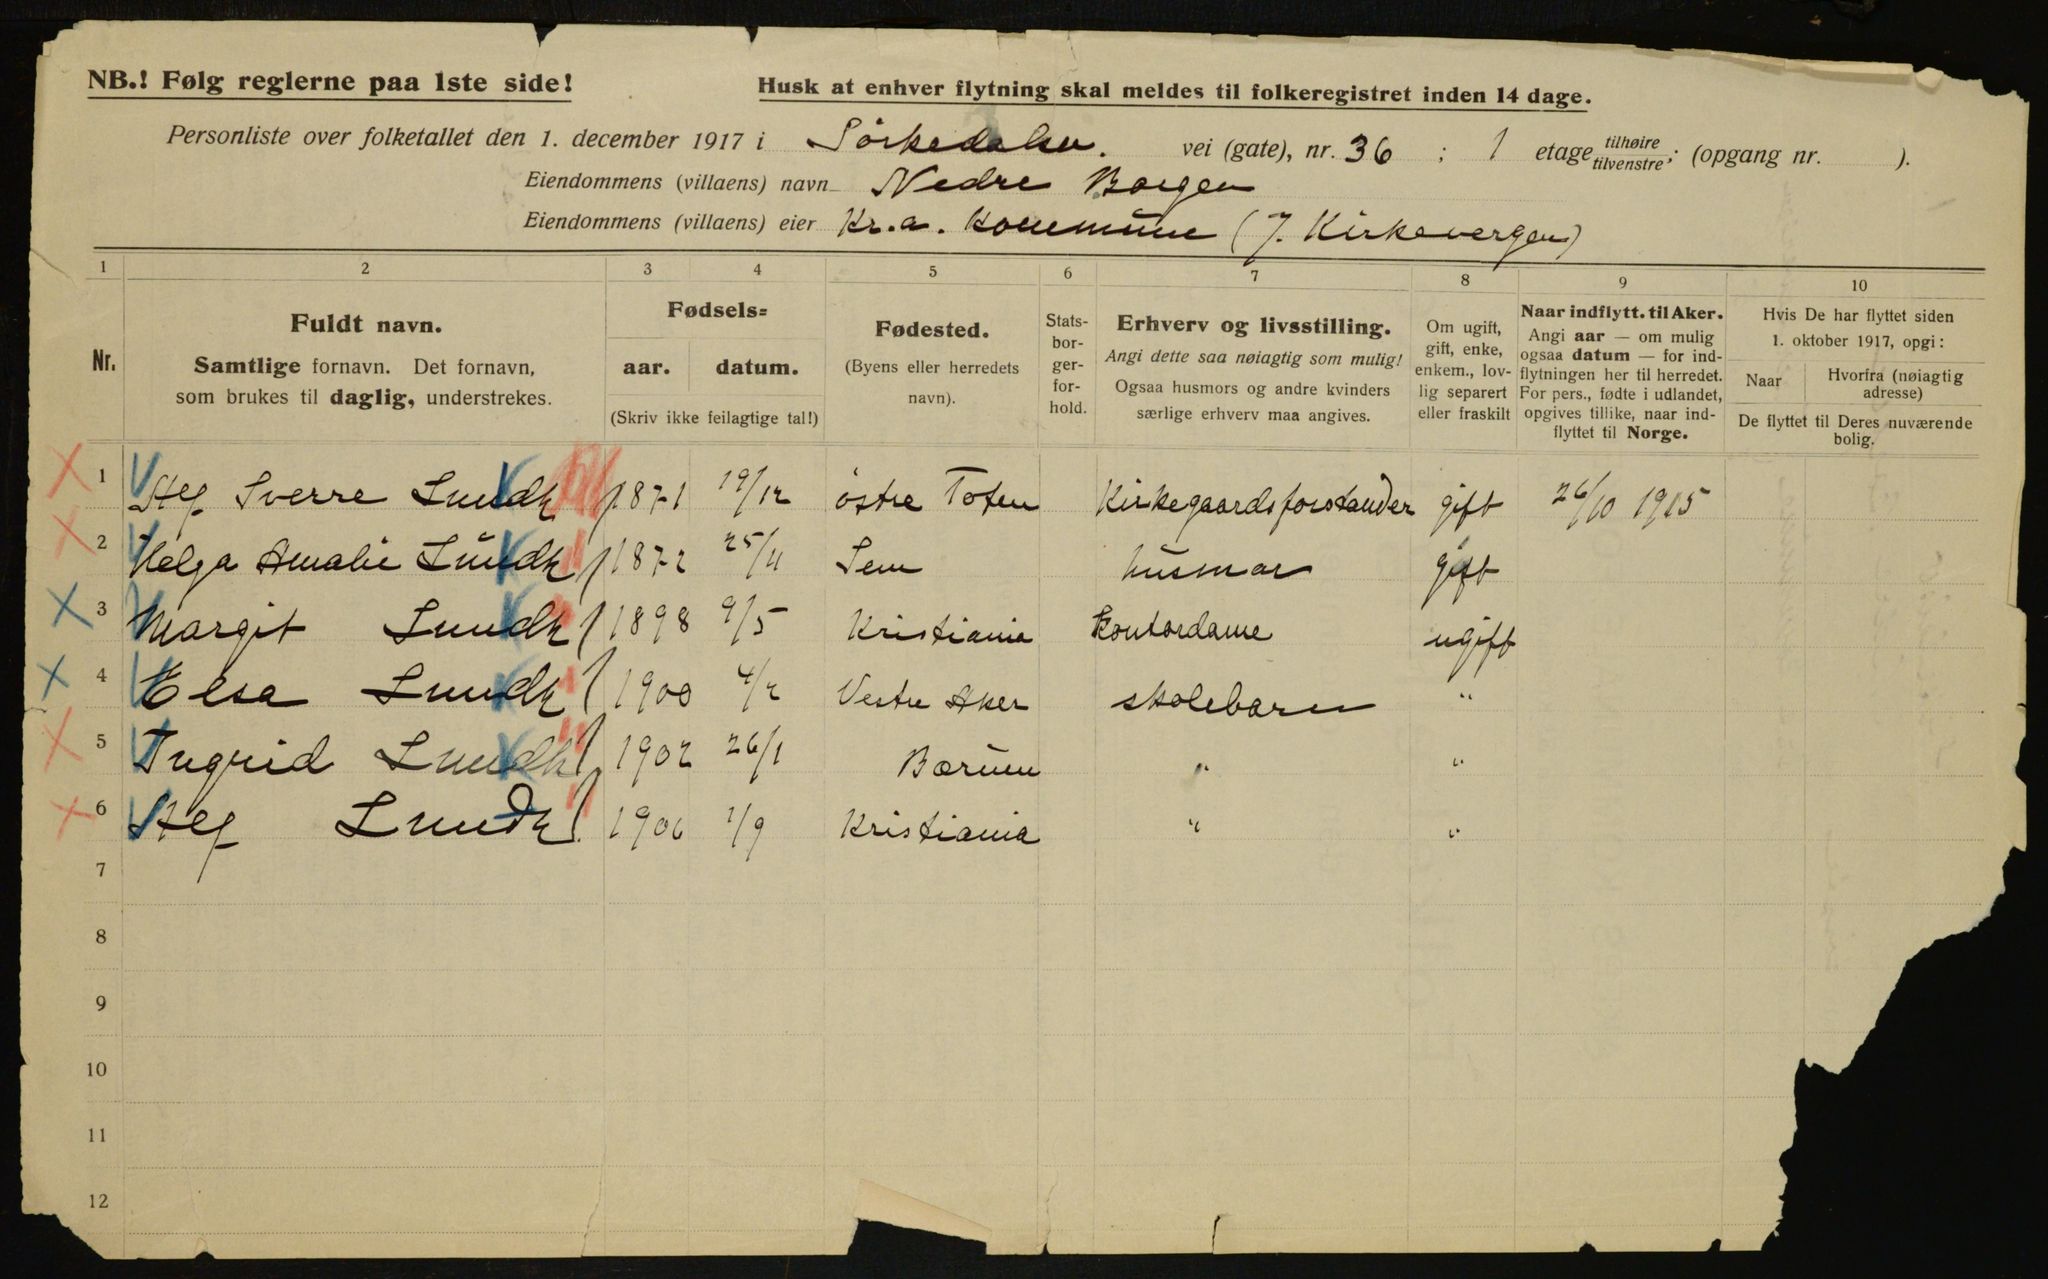 NB.! Følg reglerne paa 1ste side!
Husk at enhver flytning skal meldes til folkeregistret inden 14 dage.
Personliste over folketallet den 1. december 1917 i Sörkedalsv. vei (gate), nr. 36 ; 1 etage tilhøire tilvenstre ; (opgang nr. ).
Eiendommens (villaens) navn Nedre Borgen
Eiendommens (villaens) eier Kr.a. Kommune (J. Kirkevergen)
1 2 3 4 5 6 7 8 9 10
Nr.
Fuldt navn.
Samtlige fornavn. Det fornavn,
som brukes til daglig, understrekes.
Fødsels=
aar. datum.
(Skriv ikke feilagtige tal!)
Fødested.
(Byens eller herredets
navn).
Stats-
bor-
ger-
for-
hold.
Erhverv og livsstilling.
Angi dette saa nøiagtig som mulig!
Ogsaa husmors og andre kvinders
særlige erhverv maa angives.
Om ugift,
gift, enke,
enkem., lov-
lig separert
eller fraskilt
Naar indflytt. til Aker.
Angi aar — om mulig
ogsaa datum — for ind-
flytningen her til herredet.
For pers., fødte i udlandet,
opgives tillike, naar ind-
flyttet til Norge.
Hvis De har flyttet siden
1. oktober 1917, opgi:
Naar
Hvorfra (nøiagtig
adresse)
De flyttet til Deres nuværende
bolig.
1 Alf Sverre Lundh 1871 19/12 östre Toten Kirkegaardsforstander gift 26/10 1915
2 Helga Amalie Lundh 1872 25/11 Sem husmor gift
3 Margit Lundh 1898 9/5 Kristiania Kontordame ugift
4 Elsa Lundh 1900 4/2 Vestre Aker skolebarn "
5 Ingrid Lundh 1902 26/1 Bærum " "
6 Alf Lundh 1906 1/9 Kristiania " "
7
8
9
10
11
12